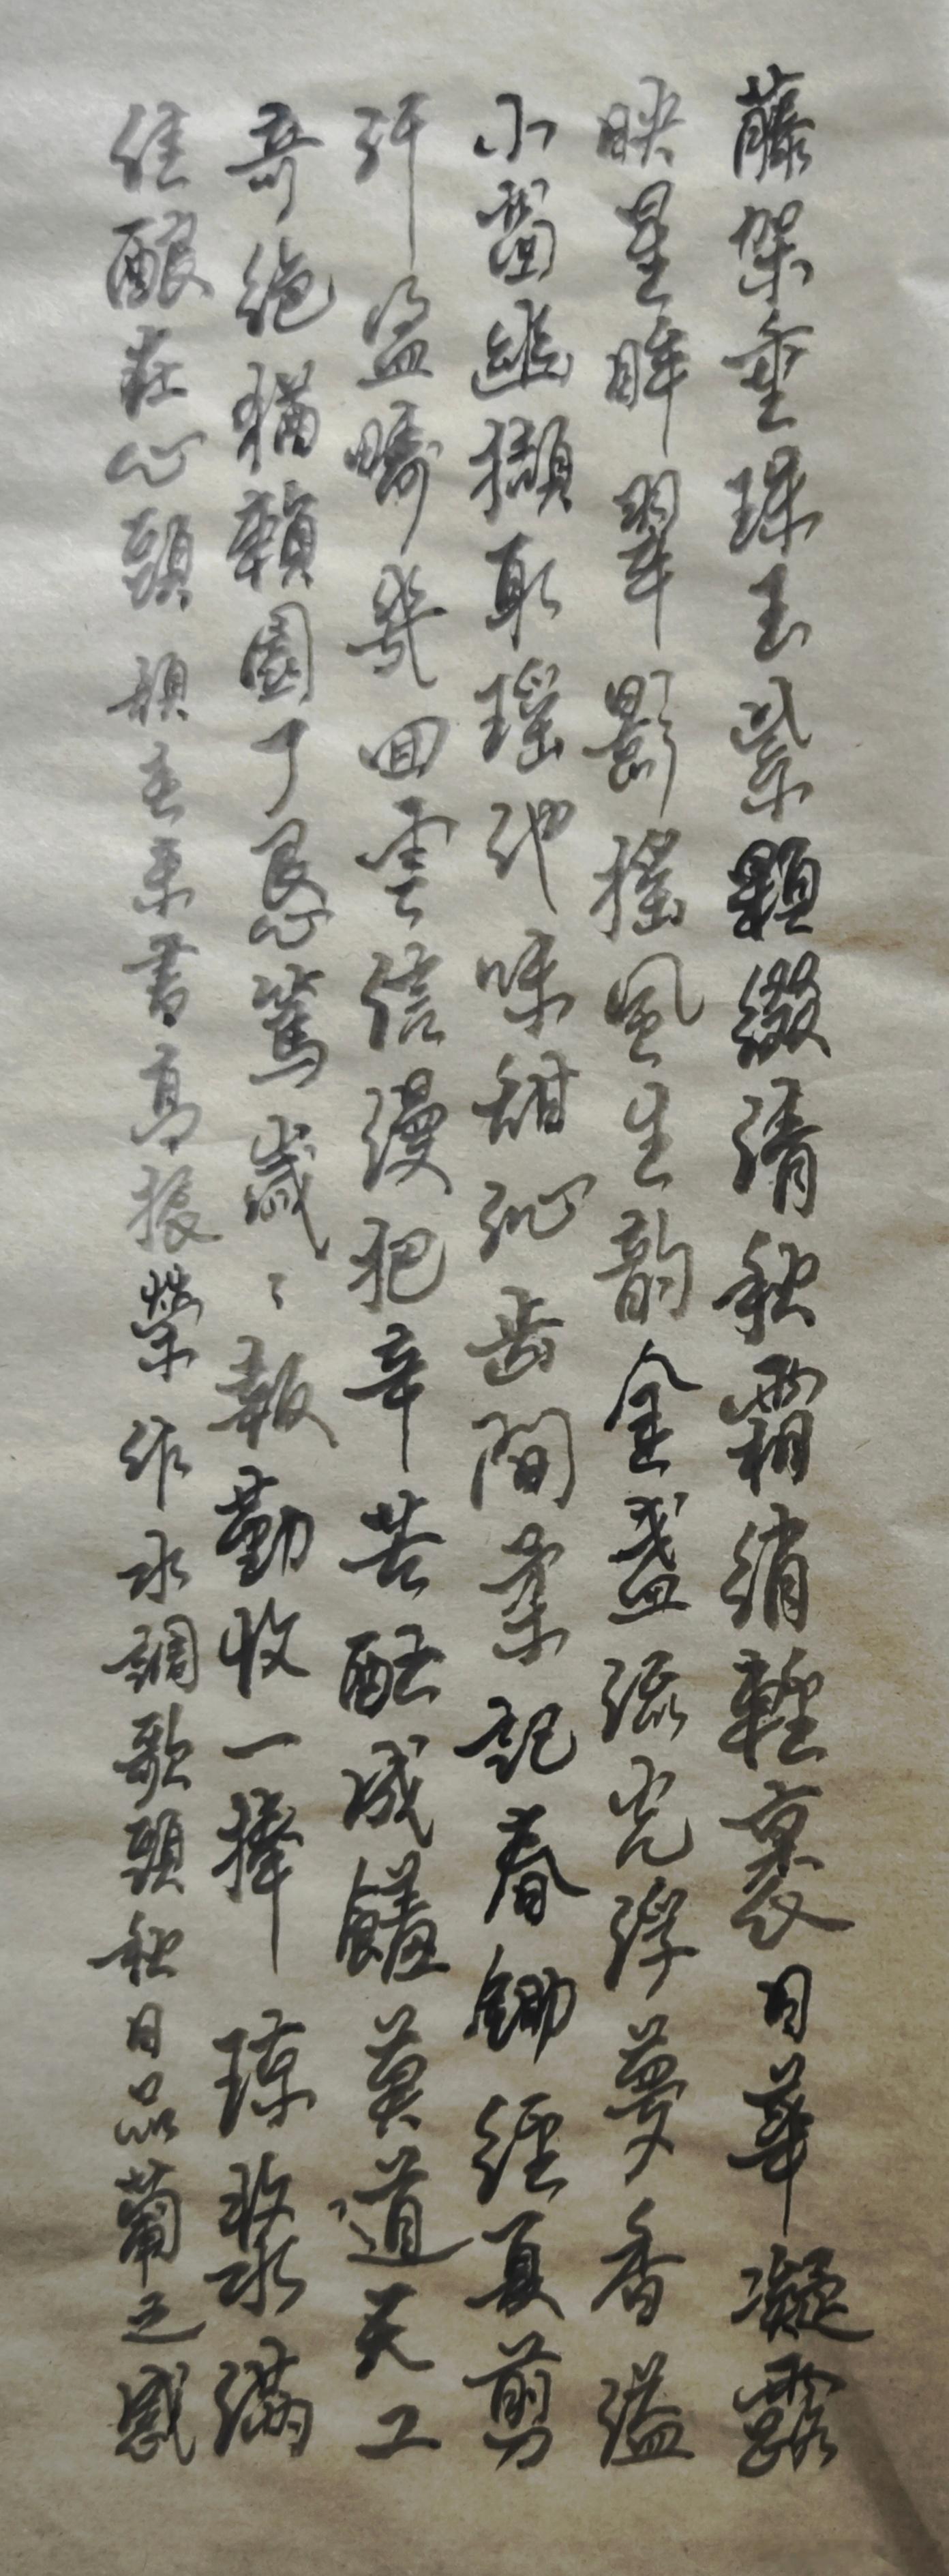 藤架垂珠玉紫顆綴清秋霜綃輕裹日華凝露
映星眸翠影搖風生韵金盞流光浮夢香溢
小窗幽擷取瑤池味甜沁齿間柔記春鋤經夏剪
汗盈疇幾回雲信漫把辛苦醖成饈莫道天工
奇絕猶賴園丁恳篤歲歲報勤收一捧瓊漿滿
佳釀在心頭 書高振榮作水調歌頭秋日品葡之感